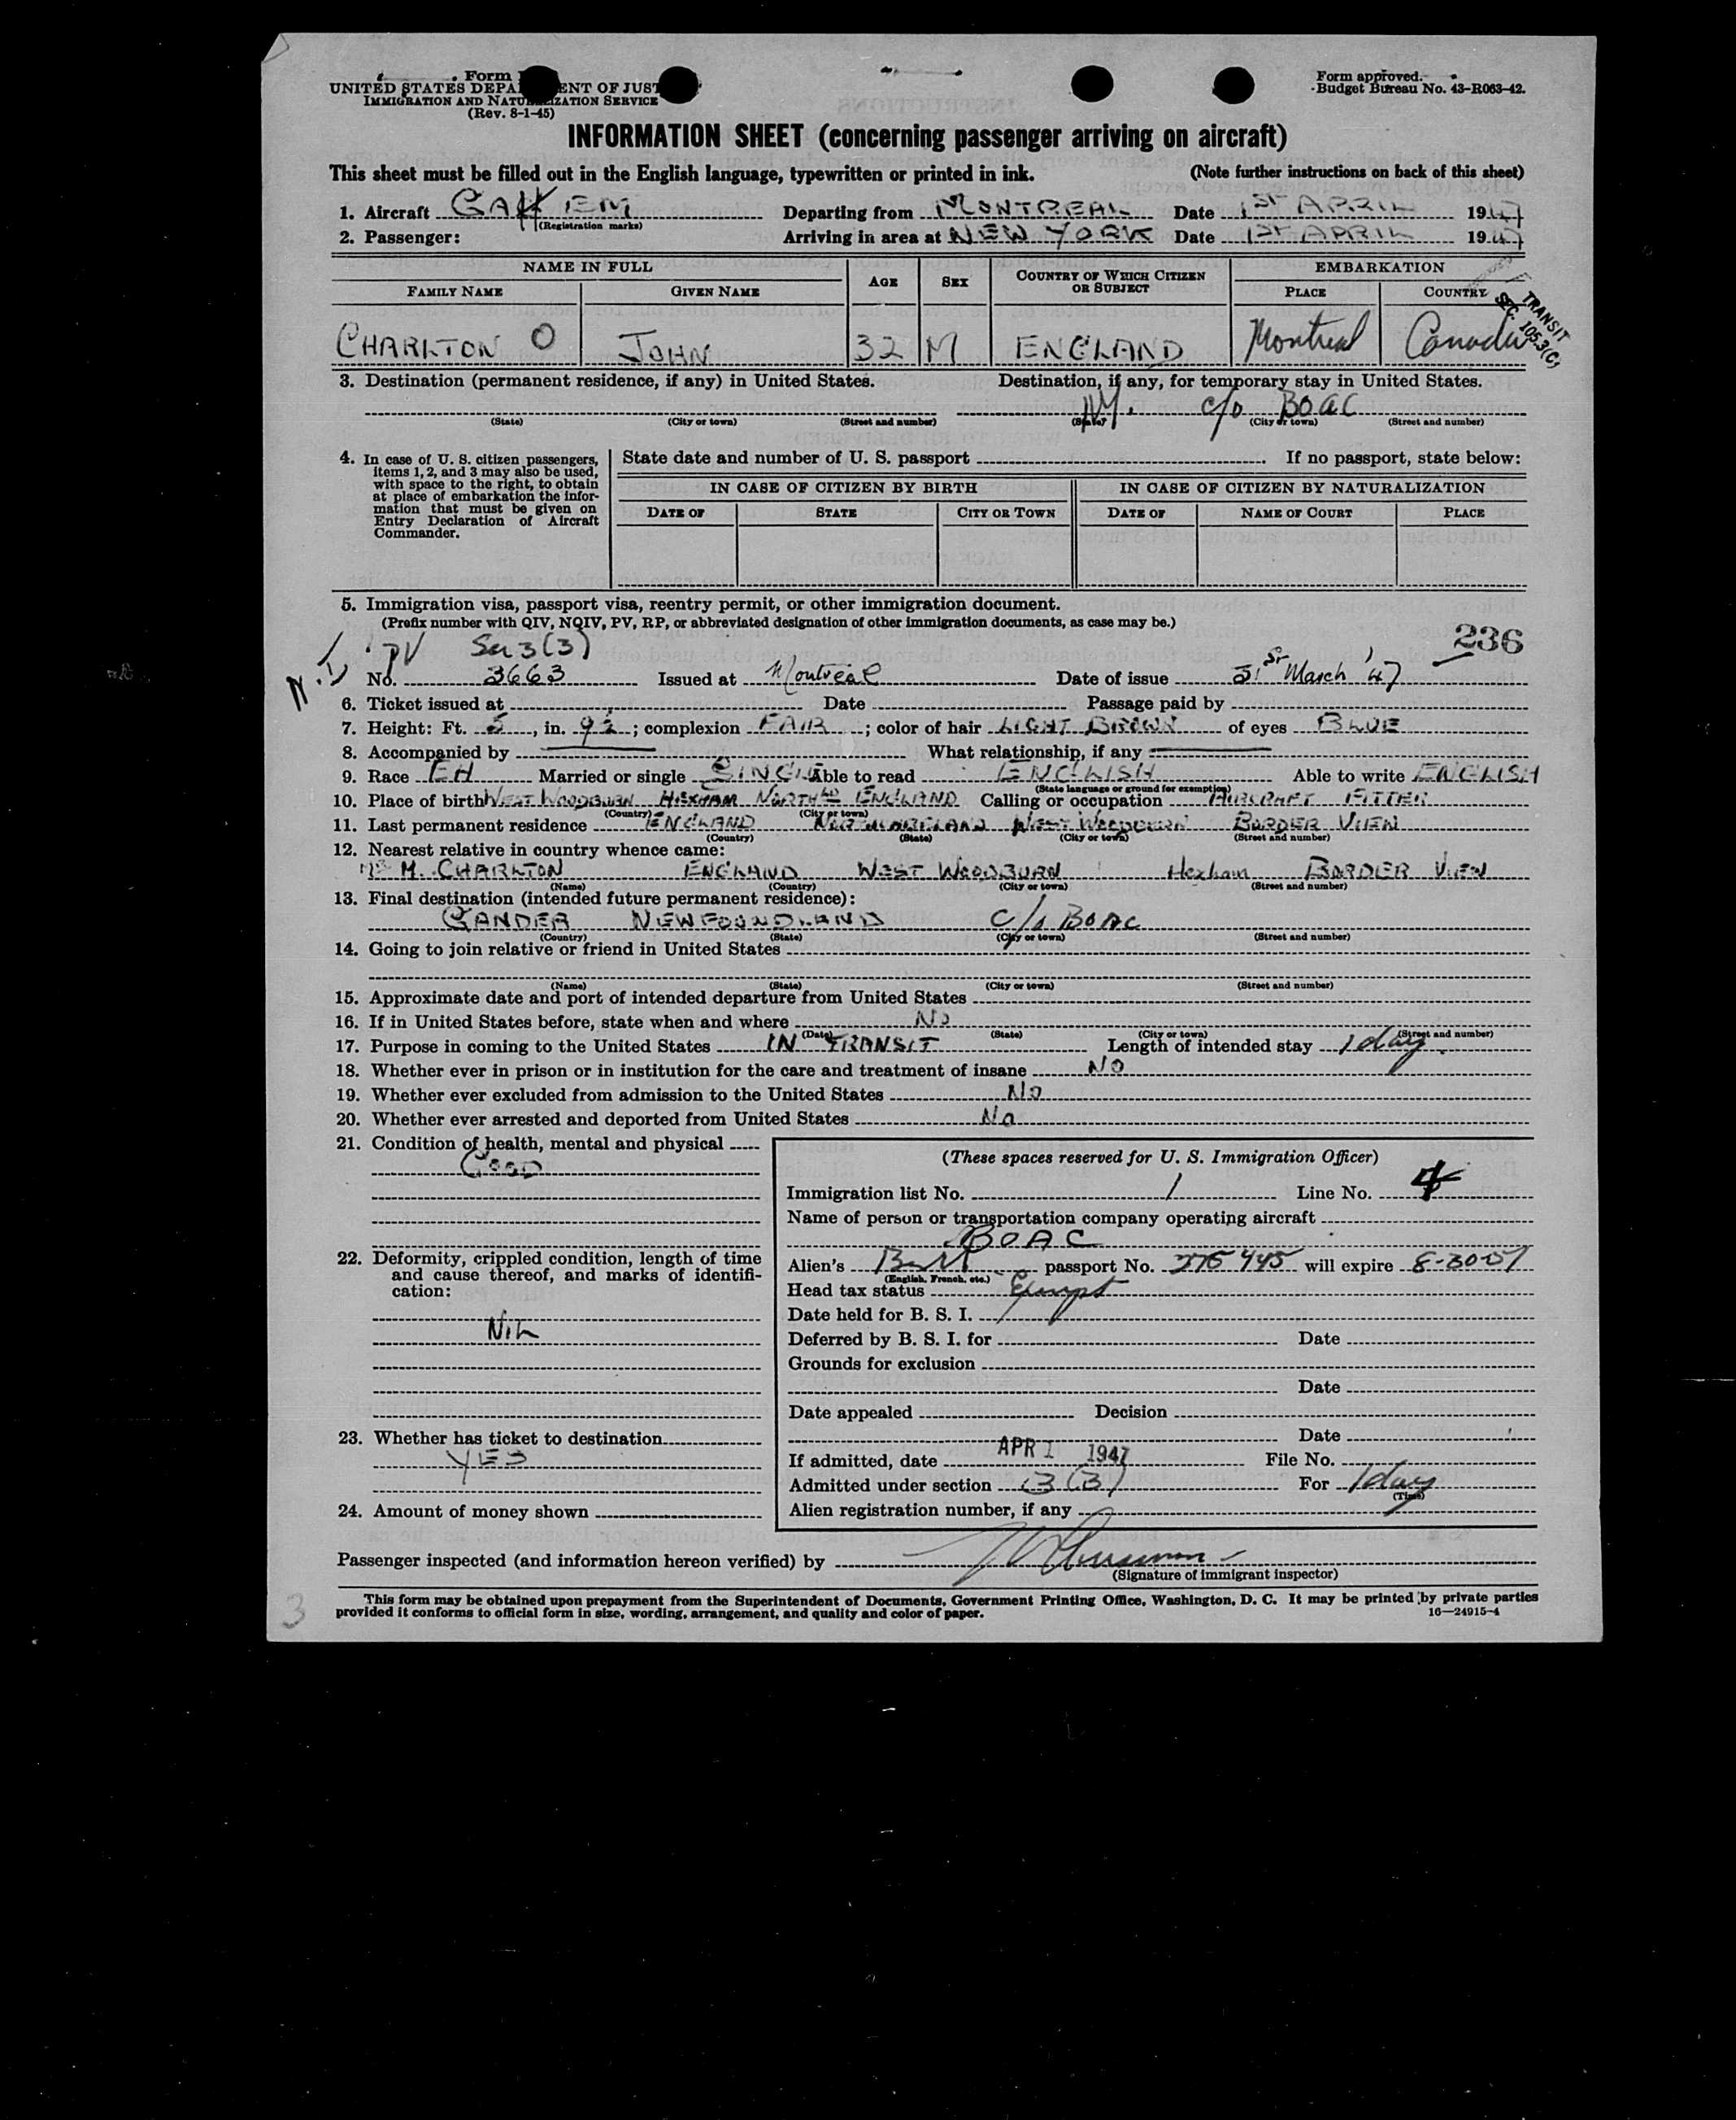 Form
UNITED STATES DEPA ENT OF JUST
IMMIGRATION AND NATU IZATION SERVICE
(Rev. 8-1-45)
Form approved.
Budget Bureau No. 43-R063-42.
INFORMATION SHEET (concerning passenger arriving on aircraft)
This sheet must be filled out in the English language, typewritten or printed in ink. (Note further instructions on back of this sheet)
1. Aircraft Departing from MONTREAL Date 1ST APRIL 1947
(Registration marks)
2. Passenger: Arriving in area at NEW YORK Date 1ST APRIL 1947
NAME IN FULL AGE SEX COUNTRY OF WHICH CITIZEN OR SUBJECT EMBARKATION
FAMILY NAME GIVEN NAME PLACE COUNTRY
TRANSIT
SEC. 105.3(C)
CHARLTON O JOHN 32 M ENGLAND Montreal Canada
3. Destination (permanent residence, if any) in United States. Destination, if any, for temporary stay in United States.
NY. c/o BOAC
(State) (City or town) (Street and number) (State) (City or town) (Street and number)
4. In case of U. S. citizen passengers,
items 1, 2, and 3 may also be used,
with space to the right, to obtain
at place of embarkation the infor-
mation that must be given on
Entry Declaration of Aircraft
Commander.
State date and number of U. S. passport If no passport, state below:
IN CASE OF CITIZEN BY BIRTH IN CASE OF CITIZEN BY NATURALIZATION
DATE OF STATE CITY OR TOWN DATE OF NAME OF COURT PLACE
5. Immigration visa, passport visa, reentry permit, or other immigration document.
(Prefix number with QIV, NQIV, PV, RP, or abbreviated designation of other immigration documents, as case may be.)
236
PV Sec 3(3)
No. 3663 Issued at Montreal Date of issue 31st March '47
6. Ticket issued at Date Passage paid by
7. Height: Ft. 5, in. 9½; complexion FAIR; color of hair LIGHT BROWN of eyes BLUE
8. Accompanied by What relationship, if any
9. Race EH Married or single SINGLE Able to read ENGLISH Able to write ENGLISH
(State language or ground for exemption)
10. Place of birth WEST WOODBURN HEXHAM NORTHLD ENGLAND Calling or occupation AIRCRAFT FITTER
(Country) (City or town)
11. Last permanent residence ENGLAND NORTHUMBERLAND WEST WOODBURN BORDER VIEW
(Country) (State) (City or town) (Street and number)
12. Nearest relative in country whence came:
M. CHARLTON ENGLAND WEST WOODBURN Hexham BORDER VIEW
(Name) (Country) (City or town) (Street and number)
13. Final destination (intended future permanent residence):
GANDER NEWFOUNDLAND C/o BOAC
(Country) (State) (City or town) (Street and number)
14. Going to join relative or friend in United States
(Name) (State) (City or town) (Street and number)
15. Approximate date and port of intended departure from United States
16. If in United States before, state when and where NO
(Date) (State) (City or town) (Street and number)
17. Purpose in coming to the United States IN TRANSIT Length of intended stay 1 day.
18. Whether ever in prison or in institution for the care and treatment of insane NO
19. Whether ever excluded from admission to the United States NO
20. Whether ever arrested and deported from United States No
21. Condition of health, mental and physical
GOOD
22. Deformity, crippled condition, length of time
and cause thereof, and marks of identifi-
cation:
NIL
23. Whether has ticket to destination
YES
24. Amount of money shown
(These spaces reserved for U. S. Immigration Officer)
Immigration list No. 1 Line No. 4
Name of person or transportation company operating aircraft
BOAC
Alien's Brit passport No. 275445 will expire 8-30-51
(English, French, etc.)
Head tax status Exempt
Date held for B. S. I.
Deferred by B. S. I. for Date
Grounds for exclusion
Date
Date appealed Decision
Date
If admitted, date APR 1 1947 File No.
Admitted under section 3(3) For 1 day
(Time)
Alien registration number, if any
Passenger inspected (and information hereon verified) by
(Signature of immigrant inspector)
This form may be obtained upon prepayment from the Superintendent of Documents, Government Printing Office, Washington, D. C. It may be printed by private parties
provided it conforms to official form in size, wording, arrangement, and quality and color of paper. 16—24915-4
3